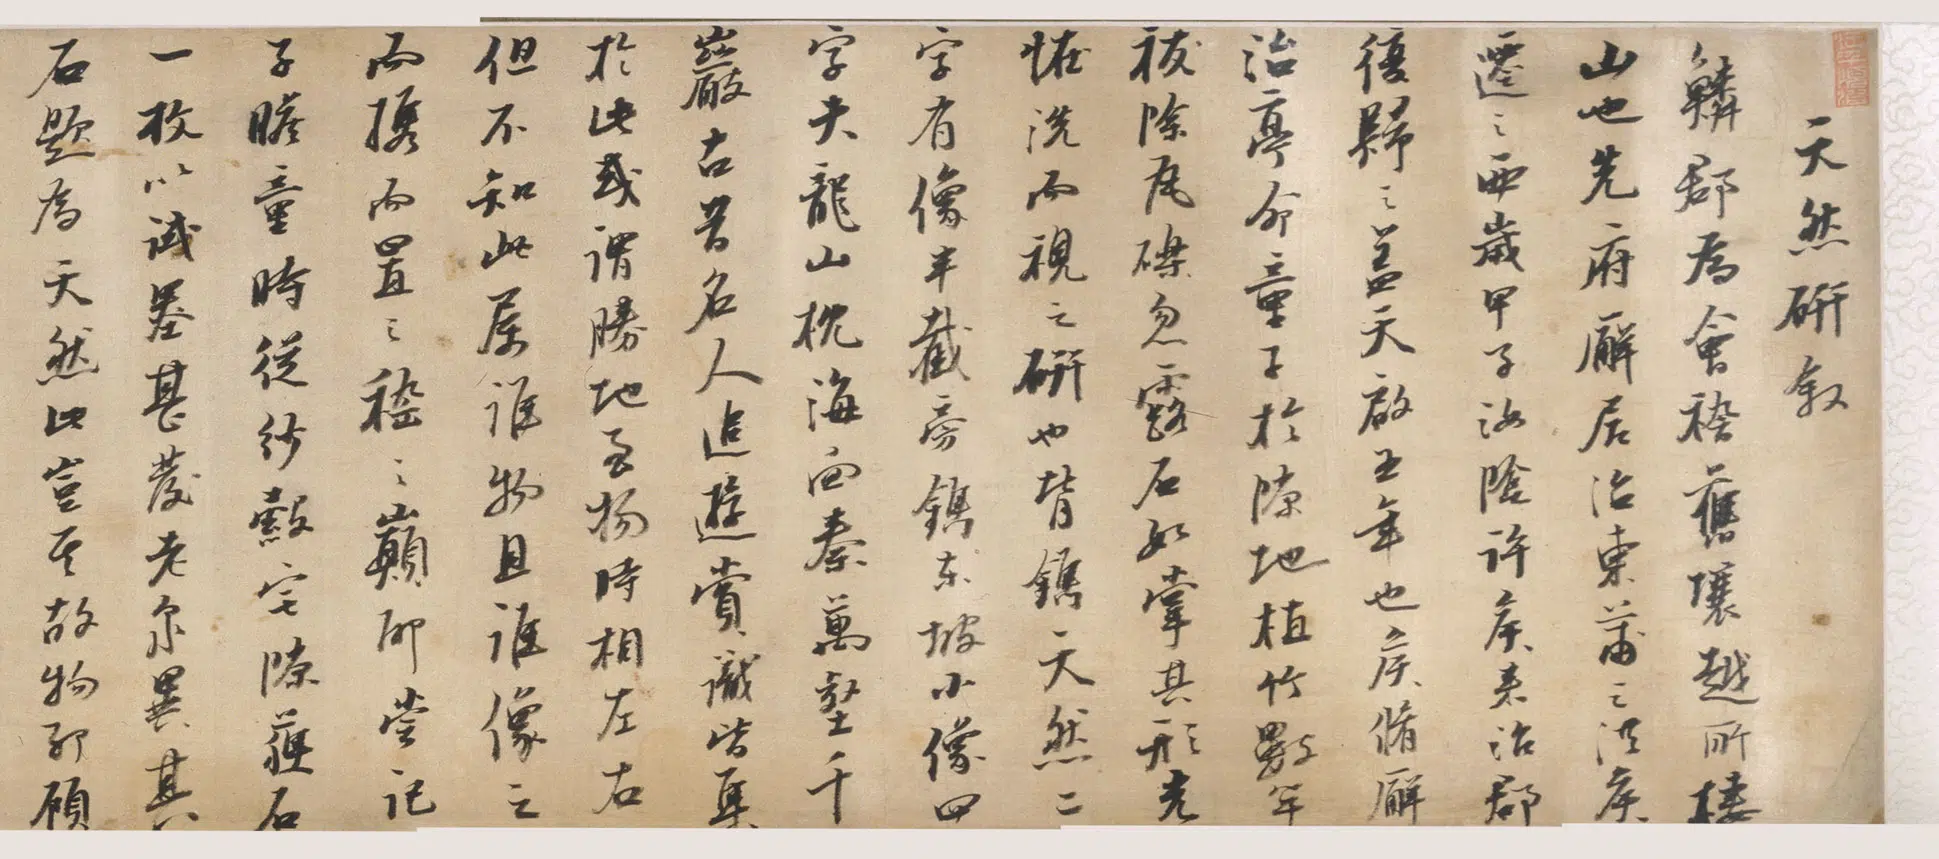 天然研敘
鄰郡為會稽舊壤越所棲
山也先府廨居治東蒲之洪侯
遷之西歲甲子汝陰許侯來治郡
復歸之蓋天啟五年也侯脩廨
治亭命童子於隙地植竹數竿
袚除瓦磔忽露石如掌其形光
恠洗而視之研也背鐫天然二
字有像半截旁鐫東坡小像四
字夫龍山枕海面秦萬壑千
巖古昔名人追遊賞識皆集
於此或謂勝地至物時相左右
但不知此屬誰物且誰像之
而攜而置之稽之山巔耶嘗記
子瞻童時從紗縠宅隙蘊石
一枚以試墨甚發老泉異其
石題為天然此豈其故物耶顧